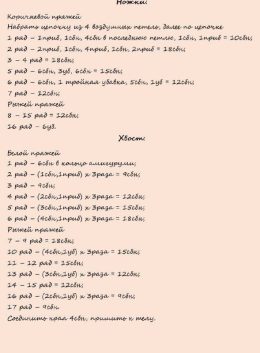 Ножки:
Коричневой пряжей
Набрать цепочку из 4 воздушных петель, далее по цепочке
1 ряд – 1приб, 1сбн, 4сбн в последнюю петлю, 1сбн, 1приб = 10сбн;
2 ряд – 2приб, 1сбн, 4приб, 1сбн, 2приб = 18сбн;
3 – 4 ряд = 18сбн;
5 ряд – 6сбн, 3уб, 6сбн = 15сбн;
6 ряд – 6сбн, 1 тройная убавка, 5сбн, 1уб = 12сбн;
7 ряд – 12сбн;
Рыжей пряжей
8 – 15 ряд = 12сбн;
16 ряд – 6уб.
Хвост:
Белой пряжей
1 ряд – 6сбн в кольцо амигуруми;
2 ряд – (1сбн,1приб) х 3раза = 9сбн;
3 ряд – 9сбн;
4 ряд – (2сбн,1приб) х 3раза = 12сбн;
5 ряд – (3сбн,1приб) х 3раза = 15сбн;
6 ряд – (4сбн,1приб) х 3раза = 18сбн;
Рыжей пряжей
7 – 9 ряд = 18сбн;
10 ряд – (4сбн,1уб) х 3раза = 15сбн;
11 – 12 ряд = 15сбн;
13 ряд – (3сбн,1уб) х 3раза = 12сбн;
14 – 15 ряд = 12сбн;
16 ряд – (2сбн,1уб) х 3раза = 9сбн;
17 ряд – 9сбн.
Соединить края 4сбн, пришить к телу.